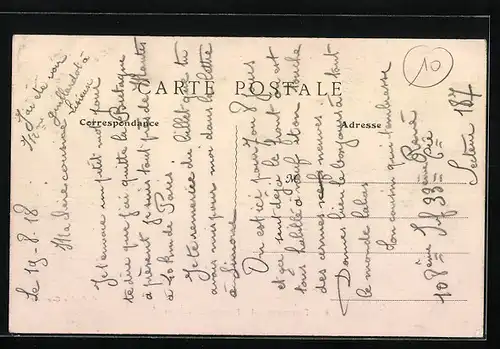 CARTE POSTALE
Correspondance
Adresse
M
10
Le 19-8-18
J'ai été voir
Guillendot à
Lisieux
Ma chère cousine
Je t'envoie un petit mot pour
te dire que j'ai quitté la Bretagne
à présent je suis tout près de Mantes
à 40 km de Paris.
Je te remercie du billet que tu
avais mis pour moi dans la lettre
à Simone
On est ici pour 7 ou 8 jours
et ça sent déjà le front on est
tous habillé à neuf et on touche
des armes neuves.
Donnes bien le bonjour à tout
le monde là bas
Ton cousin qui t'embrasse
René
108ème Inf 33ème Cie
Secteur 187